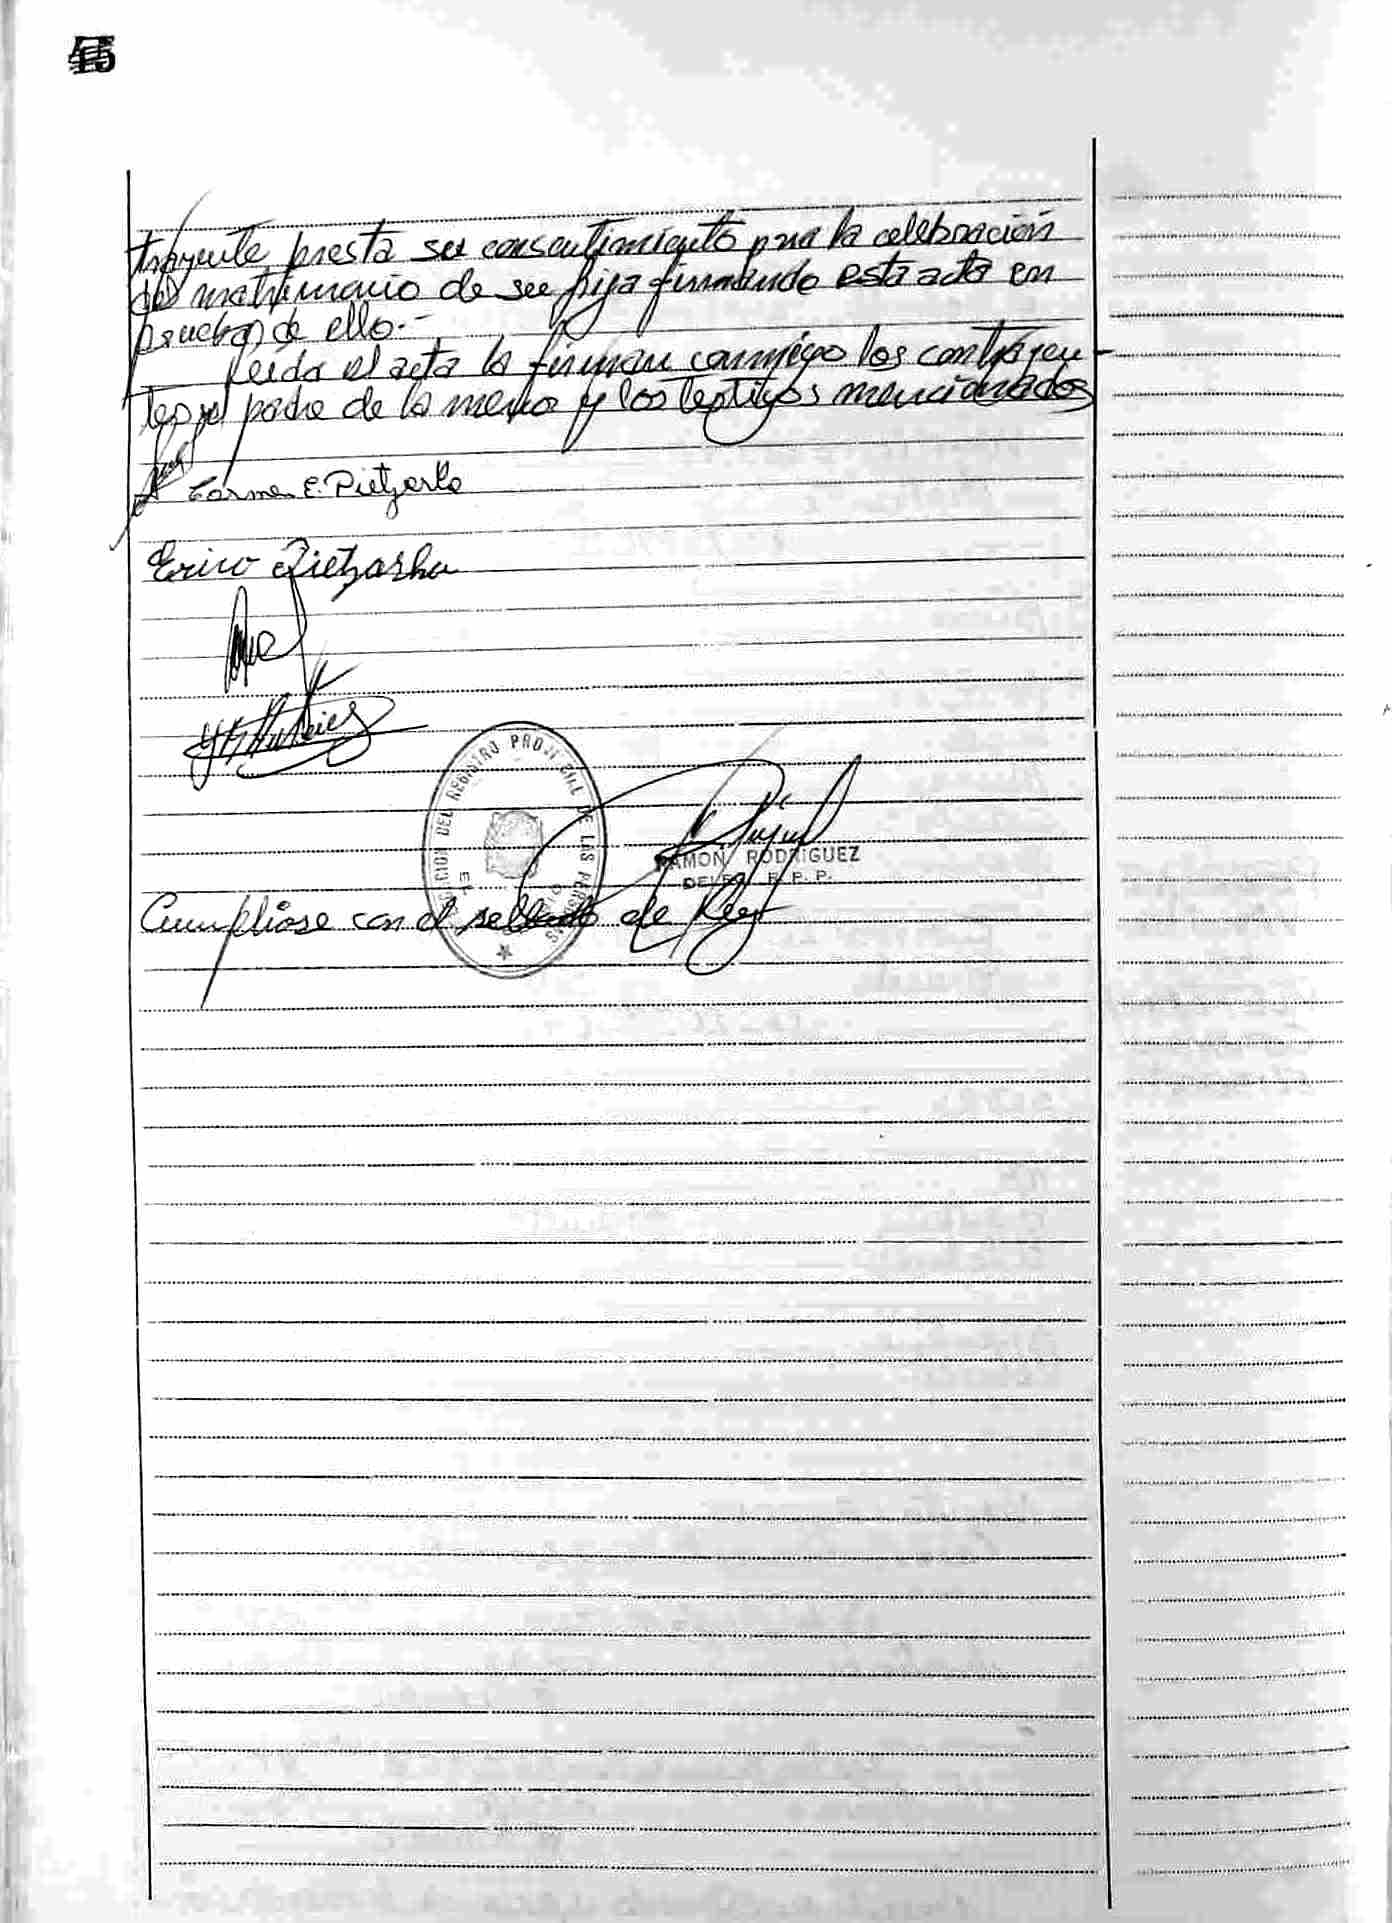 trayente presta su consentimiento para la celebración
del matrimonio de su hija firmando esta acta en
prueba de ello.-
Leida el acta la firman conmigo los contrayen
tes, el padre de la menor y los testigos mencionados
Carmen E. Pietzarka
Erico Pietzarka
RAMON RODRIGUEZ
DEL REGISTRO
DE LAS PERSONAS
R. P. P.
Cumpliose con el sellado de Ley